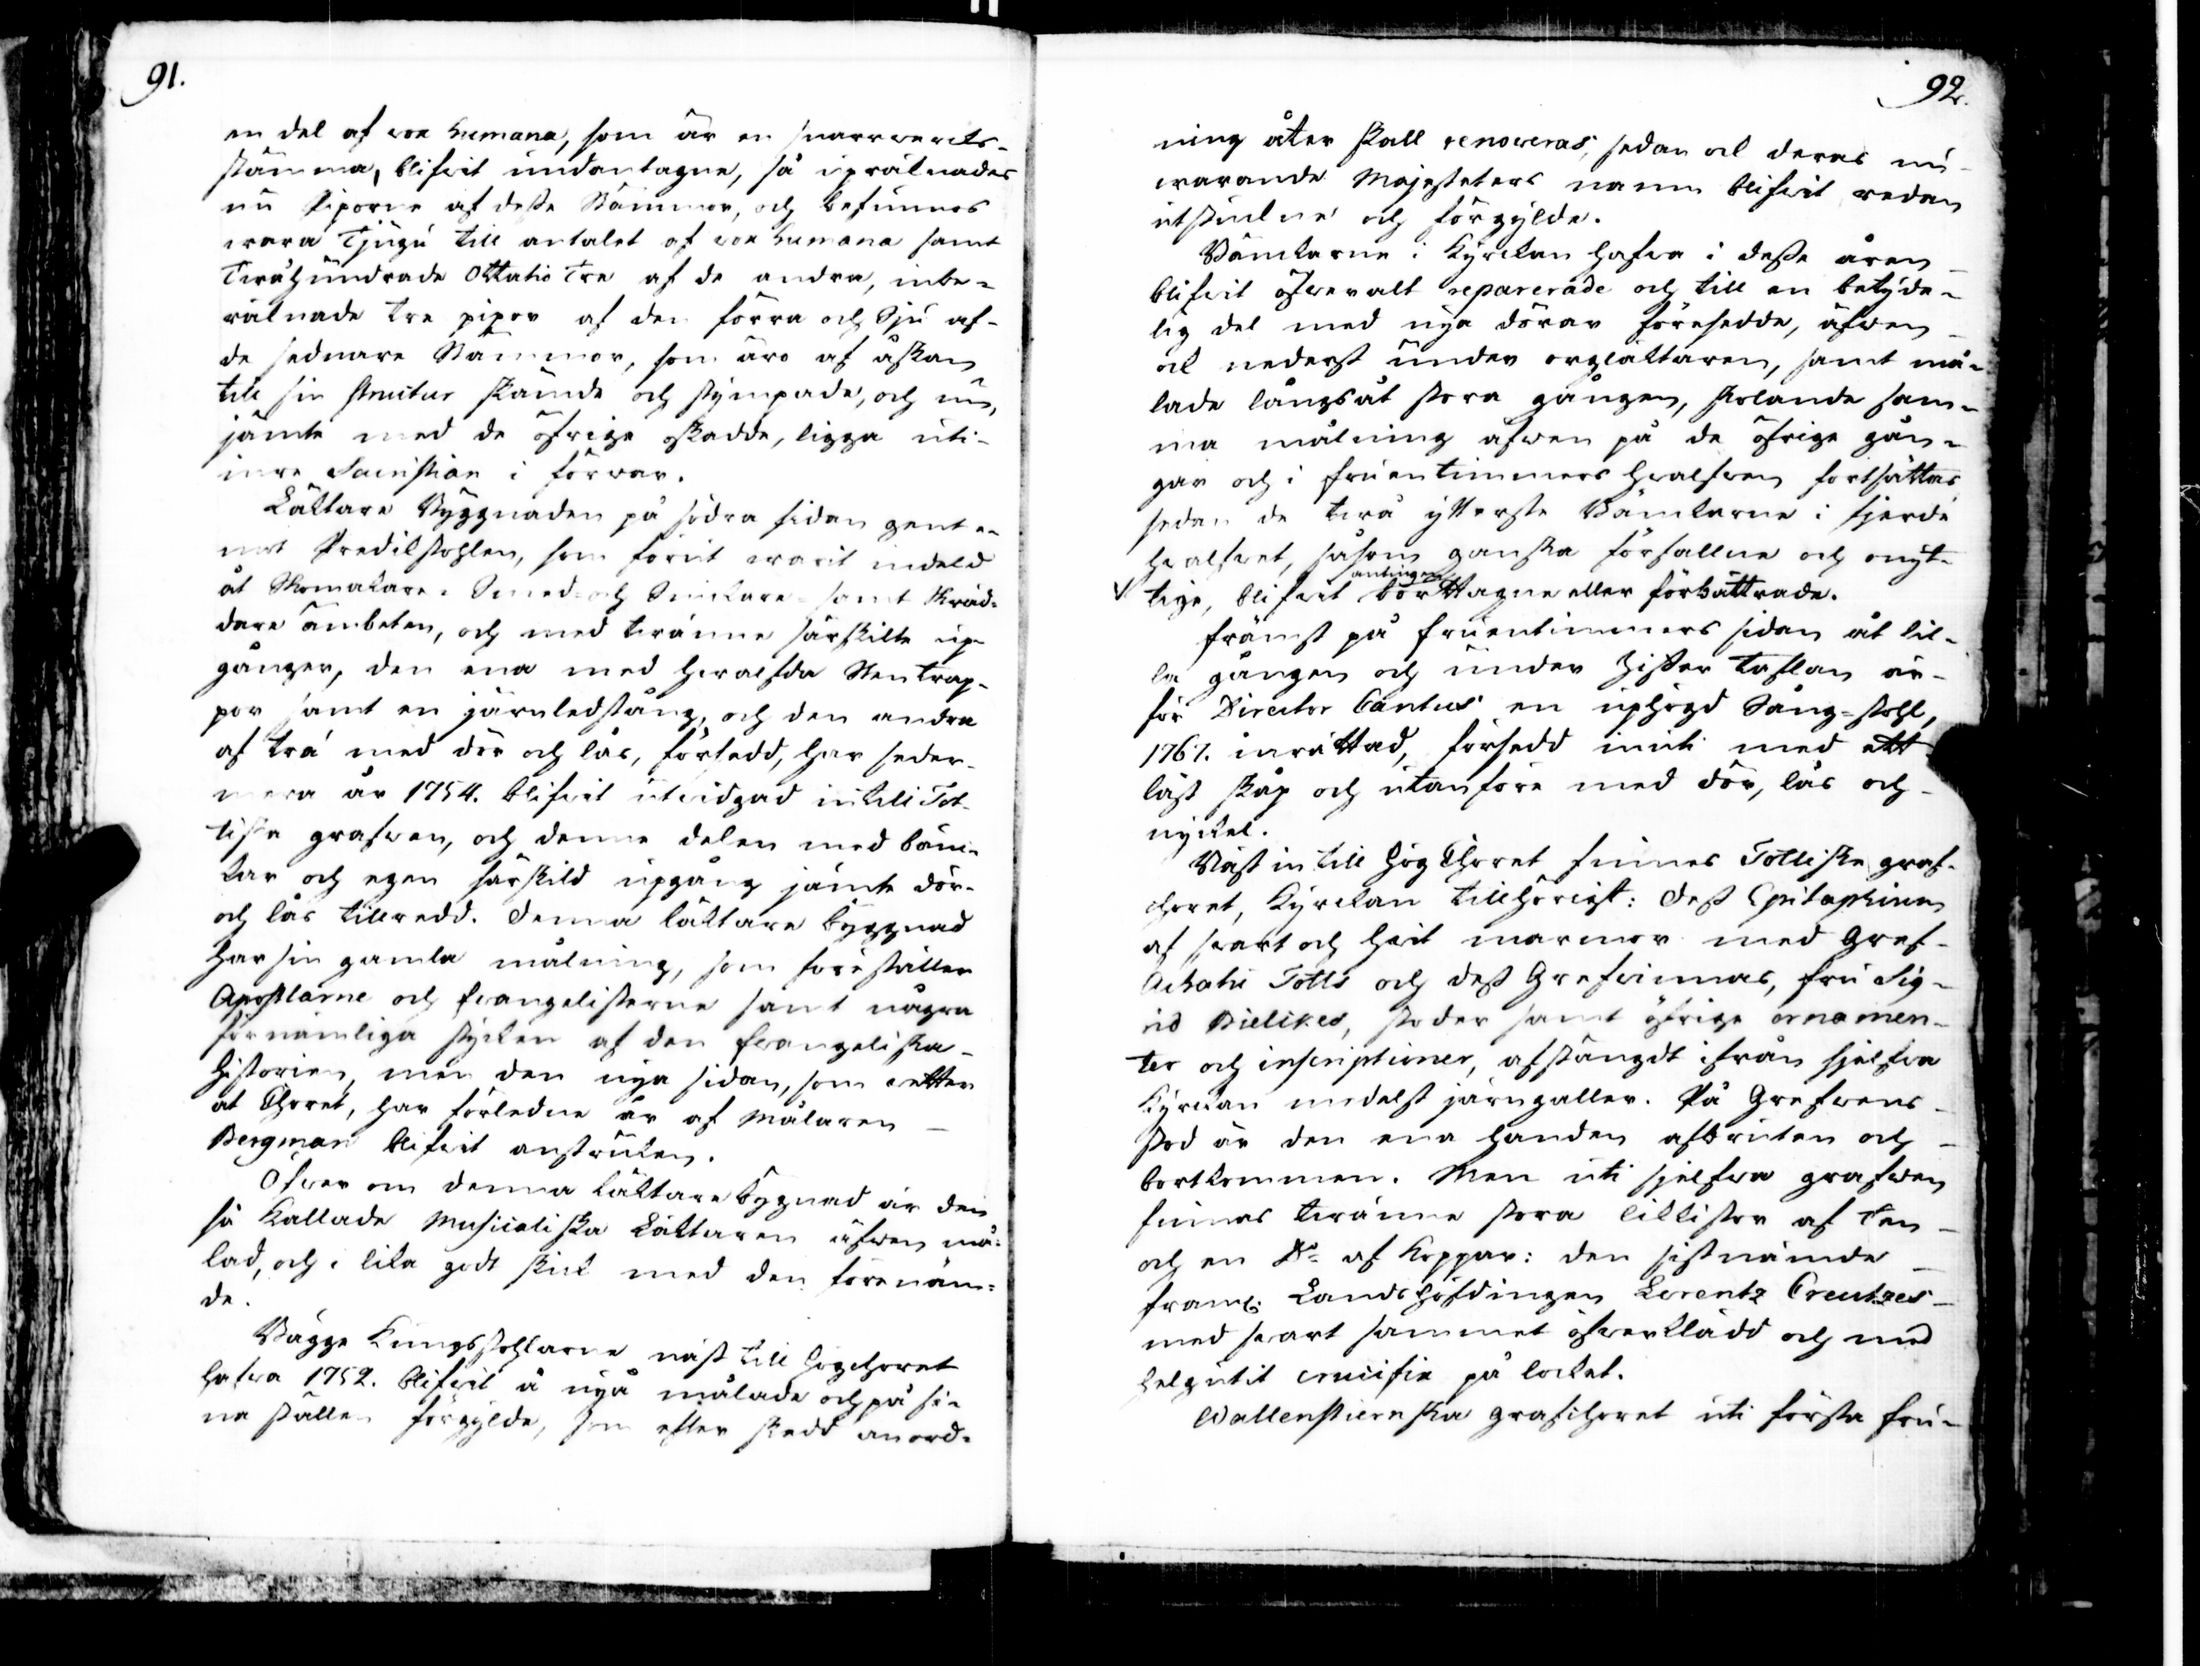 91.
en del af vox humana, som är en snarrwercks-
stämma, blifwit undantagne, så upräknades
nu Piporne af desse Stämmor, och befunnos
wara Tjugu till antalet af vox humana samt
Twåhundrade Ottatio Tre af de andra, inbe-
räknade tre pipor af den förra och Sju af
de sednare Stämmor, som äro af åskan
till sin structur skämde och stympade, och nu,
jämte med de öfrige oskadde, ligga uti
inre Sacristian i förwar.
Läktare Byggnaden på södra sidan gent e-
mot Predikstohlen, som förut warit indeld
åt Skomakare- Smed- och Snickare- samt Skräd-
dare ämbeten, och med twänne särskilte up-
gånger, den ena med hwalfda Stentrap-
por samt en järnledstång, och den andra
af trä med dör och lås, försedd, har seder-
mera år 1754. blifwit utwidgad intill Tot-
tiska grafwen, och denne delen med bän-
kar och egen särskild upgång jämte dör
och lås tillredd. Denna läktare byggnad
har sin gamla målning, som föreställer
Apostlarne och Evangelisterne samt några
förnämliga stycken af den Evangeliska
historien, men den nya sidan, som wetter
åt Choret, har förledne år af Målaren
Bergman blifwit anstruken.
Öfwer om denna läktare bygnad är den
så kallade Musicaliska Läktaren äfwen må-
lad, och i lika godt skick med den förenäm-
de.
Bägge Kungsstohlarne näst till högchoret
hafwa 1752. blifwit å nyå målade och på si-
na ställen förgylde, som efter skedd anord-
92.
ning åter skall renoveras, sedan ock deras nu-
warande Majesteters namn blifwit redan
utstuckne och förgylde.
Bänkarne i Kyrckan hafwa i desse åren
blifwit öfweralt reparerade och till en betyde-
lig del med nya dörar försedde, äfwen
ock nederst under orgläktaren, samt må-
lade långsåt stora gången, skolande sam-
ma målning äfwen på de öfrige gån-
gar och i fruentimmers hwalfwen fortsättas
sedan de twå ytterste Bänkarne i fjerde
hwalfwet, såsom ganska förfallne och onyt-
antingen
tige, blifwit borttagne eller förbättrade.
Främst på fruentimmers sidan åt lil-
la gången och under Ziffer taflan är
för Director Cantus en uphögd Sång-stohl,
1767. inrättad, försedd inuti med ett
låst skåp och utanföre med dör, lås och
nyckel.
Näst in till Hög Choret finnes Tottiske graf-
choret, Kyrckan tillhörigt: dess Epitaphium
af swart och hwit marmor med Gref
Achatii Totts och dess Grefwinnas, fru Sig-
rid Bielkes, stoder samt öfrige ornamen-
ter och inscriptioner, afstängdt ifrån sjelfwa
Kyrckan medelst järngaller. På Grefwens
stod är den ena handen afbruten och
bortkommen. Men uti sjelfwa grafwen
finnas twänne stora likkistor af Ten
och en D:o af Koppar: den sistnämde
fram: Landshöfdingen Lorentz Creutzes
med swart sammet öfwerklädd och med
helgutit crucifix på locket.
Wallenstiernska grafchoret uti första fru-